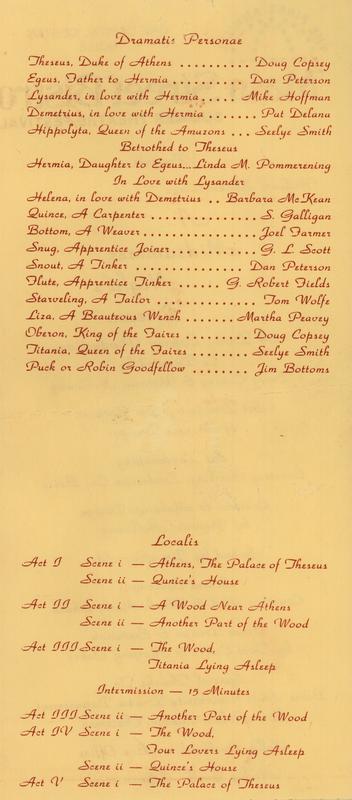 Dramatis Personae
Theseus, Duke of Athens .......... Doug Copsey
Egeus, Father to Hermia .......... Dan Peterson
Lysander, in love with Hermia ..... Mike Hoffman
Demetrius, in love with Hermia ....... Pat Delana
Hippolyta, Queen of the Amazons ... Seelye Smith
Betrothed to Theseus
Hermia, Daughter to Egeus...Linda M. Pommerening
In Love with Lysander
Helena, in love with Demetrius .. Barbara McKean
Quince, A Carpenter ................ S. Galligan
Bottom, A Weaver ................. Joel Farmer
Snug, Apprentice Joiner ............. G. L. Scott
Snout, A Tinker ............... Dan Peterson
Flute, Apprentice Tinker ....... G. Robert Fields
Starveling, A Tailor ............... Tom Wolfe
Liza, A Beauteous Wench ....... Martha Peavey
Oberon, King of the Faires ......... Doug Copsey
Titania, Queen of the Faires ........ Seelye Smith
Puck or Robin Goodfellow .......... Jim Bottoms
Localis
Act I Scene i — Athens, The Palace of Theseus
Scene ii — Qunice's House
Act II Scene i — A Wood Near Athens
Scene ii — Another Part of the Wood
Act III Scene i — The Wood,
Titania Lying Asleep
Intermission — 15 Minutes
Act III Scene ii — Another Part of the Wood
Act IV Scene i — The Wood,
Four Lovers Lying Asleep
Scene ii — Quince's House
Act V Scene i — The Palace of Theseus